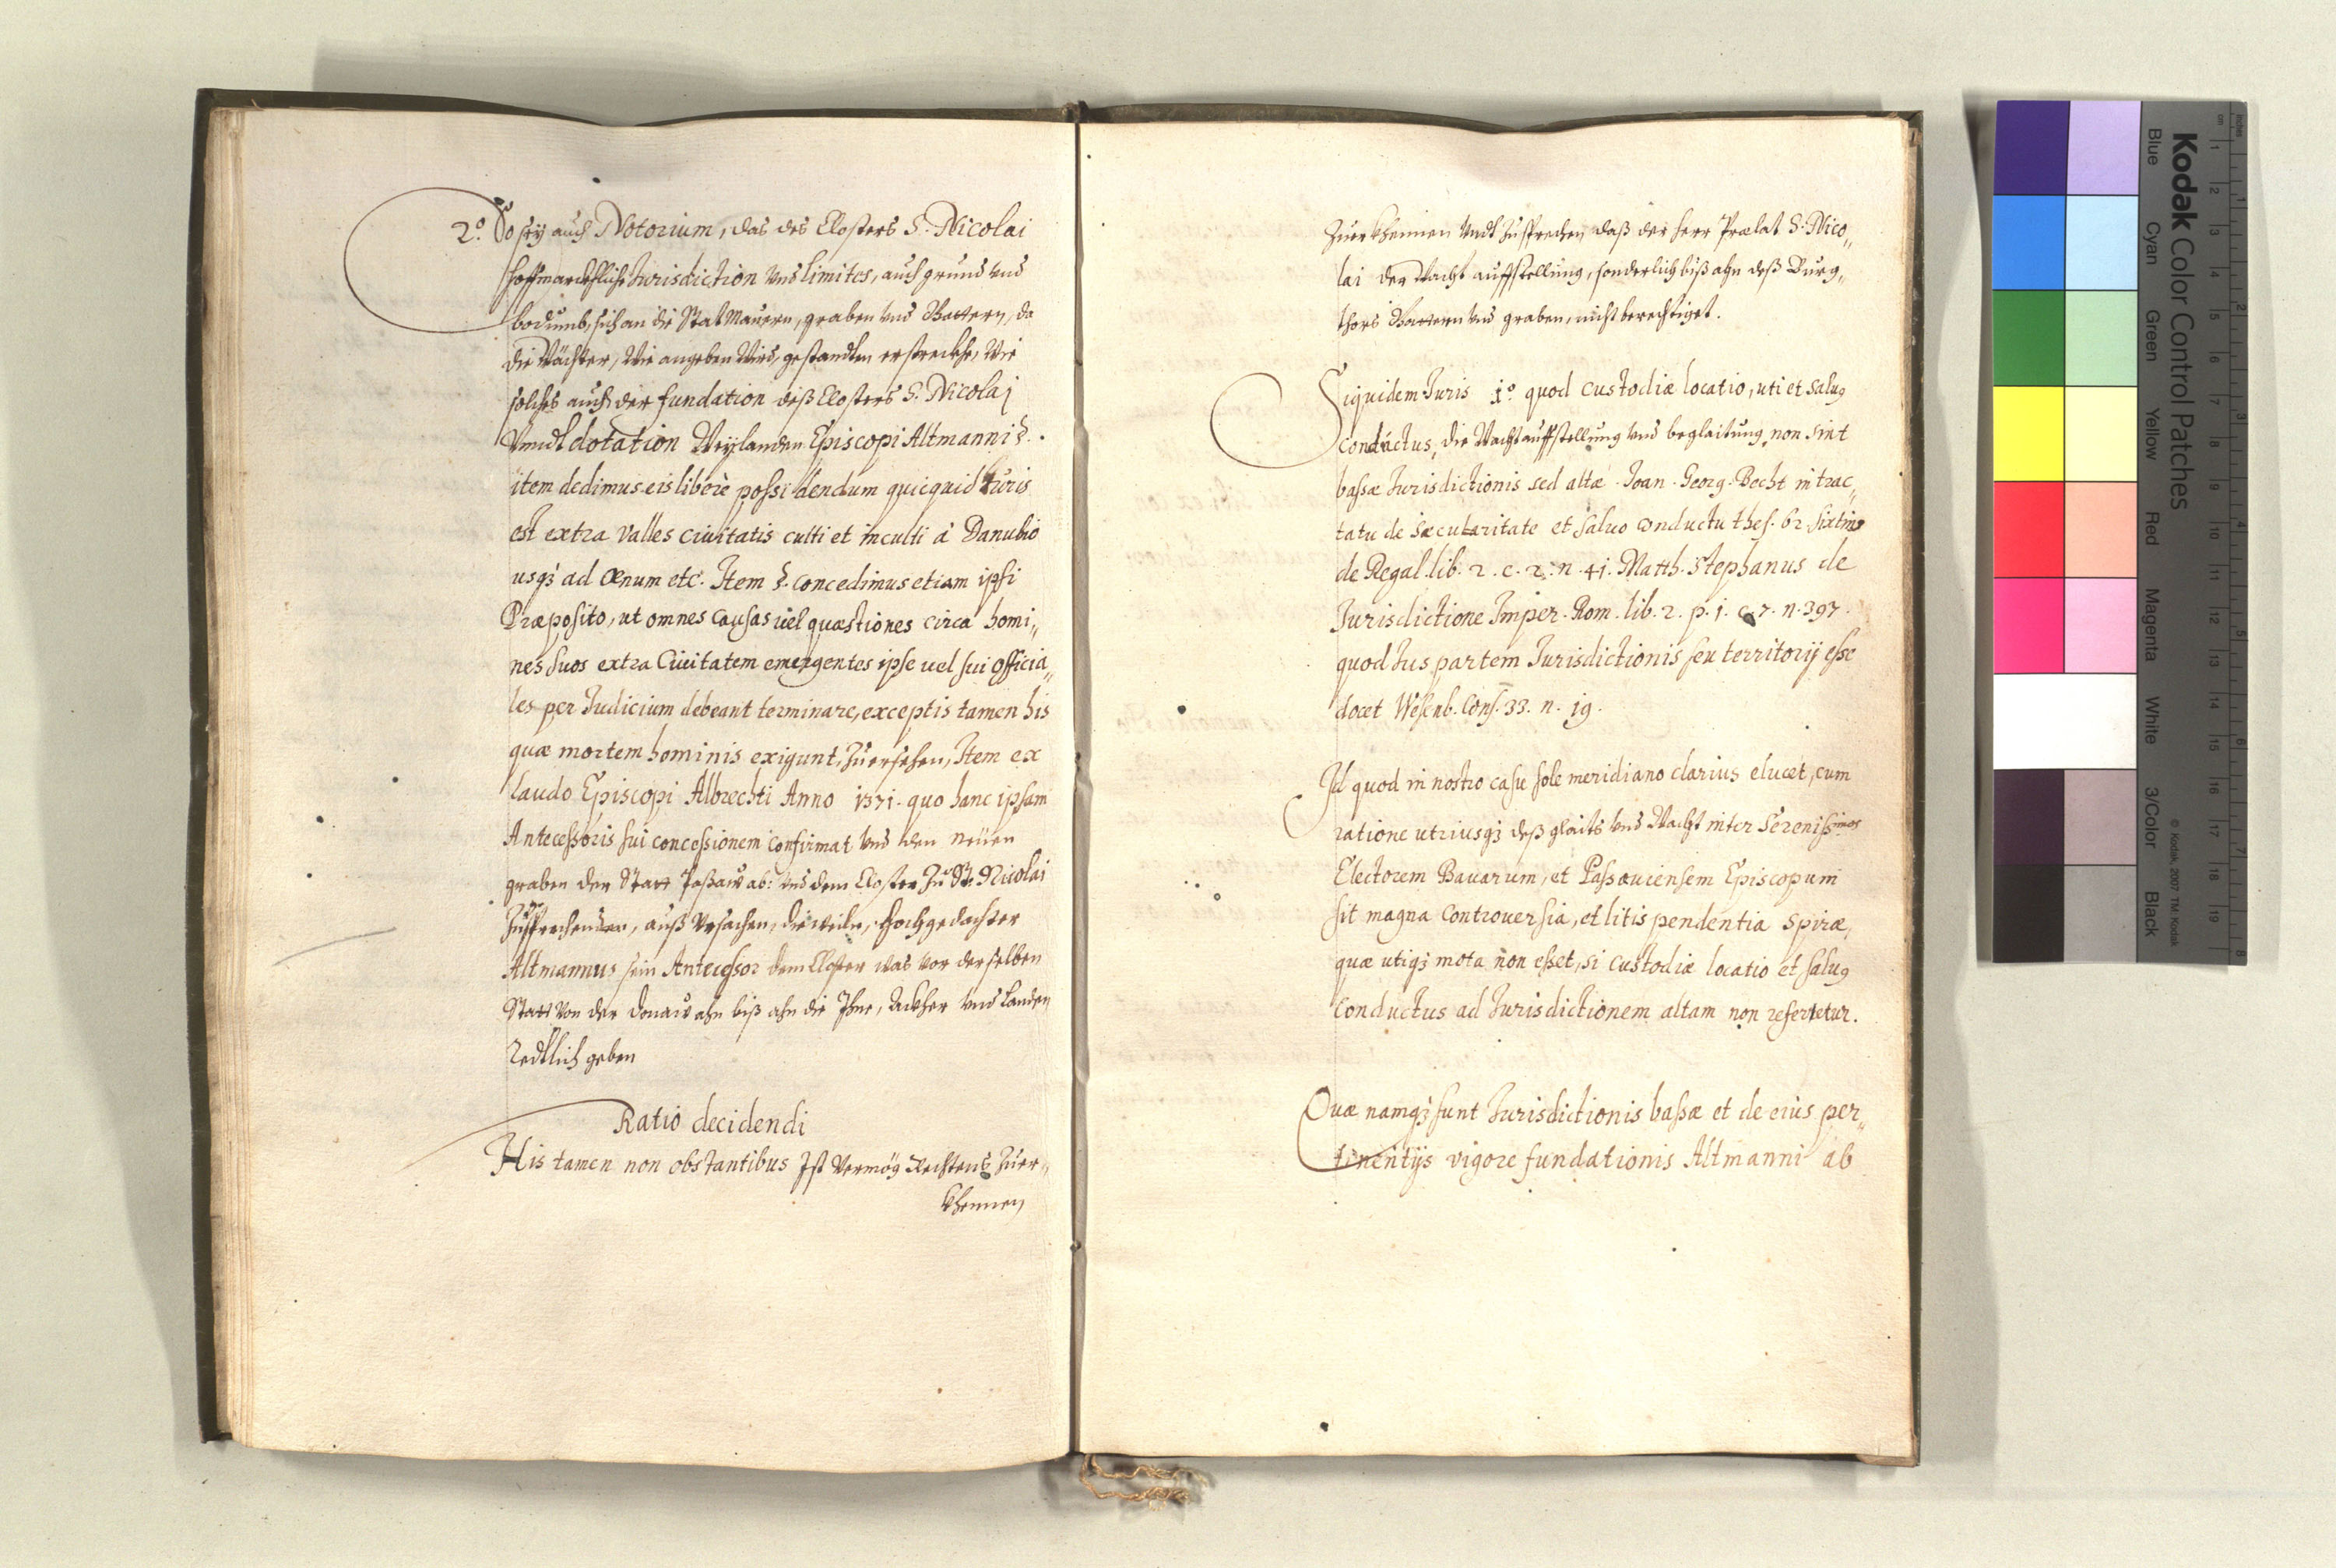 2.º So sey auch Notorium, das des Closters S. Nicolai
hoffmarchliche Jurisdiction vnd limites, auch grund vnd
bodumb, sich an die Statmauern, graben vnd Gattern, da
die Wächter, wie angeben wird, gestandten erstreckhe, wie
solches auch der fundation deß Closters S. Nicolaj
vnndt dotation Weylanden Episcopi Altmanni §.
item dedimus eis liberè possidendum quicquid Juris
est extra valles ciuitatis culti et inculti à Danubio
usq3 ad Œnum etc. Item §. concedimus etiam ipsi
Præposito, ut omnes causas uel quæstiones circa homi„
nes suos extra Ciuitatem emergentes ipse uel sui officia„
les per Judicium debeant terminare, exceptis tamen his
quæ mortem hominis exigunt, zuersehen, Item ex
laudo Episcopi Albrechti Anno 1371. quo hanc ipsam
Antecessoris sui concessionem confirmat vnd den neüen
graben der Statt Paßaw ab: vnd dem Closter zu St. Nicolai
zusprechen, auß vrsachen, dieweiln, hochgedachter
Altmannus sein Antecessor dem Closter was vor derselben
Statt von der Donaw ahn biß ahn die Ihne, Äckher vnd Landen
redtlich geben
Ratio decidendi
His tamen non obstantibus Ist vermög Rechtens zuer„
khennen
zuerkhennen vndt zusprechen daß der herr Prælat S. Nico„
lai der Wacht auffstellung, sonderlich biß ahn deß Burg„
thors Gattern vnd graben, nicht berechtiget.
Siquidem Juris 1º quod custodiæ locatio, uti et saluq
conductus, die Wachtauffstellung vnd beglaitung, non sint
bassæ Jurisdictionis sed altæ. Joan. Georg. Becht in trac„
tatu de sæcularitate et saluo conductu thes. 62. Sixtinq
de Regal. lib. 2. c. 2. n. 41. Matth. Stephanus de
Jurisdictione Imper. Rom. lib. 2. p. 1. c. 7. n. 397.
quod Jus partem Jurisdictionis seu territorij esse
docet Wesenb. Cons. 33. n. 19.
Id quod in nostro casu sole meridiano clarius elucet, cum
ratione utriusq3 deß glaits vnd Wacht inter Serenissimos
Electorem Bauarum, et Passauiensem Episcopum
sit magna controuersia, et litis pendentia Spiræ,
quæ utiq3 mota non esset, si custodiæ locatio et saluq
conductus ad Jurisdictionem altam non referretur.
Quæ namq3 sunt Jurisdictionis bassæ et de eius per„
tinentijs vigore fundationis Altmanni ab
Kodak Color Control Patches
Blue Cyan Green Yellow Red Magenta White 3/Color Black
© Kodak, 2007 TM: Kodak